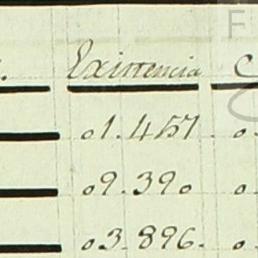 Existencia C
o1.457. o.
o9.390 o.
o3.896. o.
F